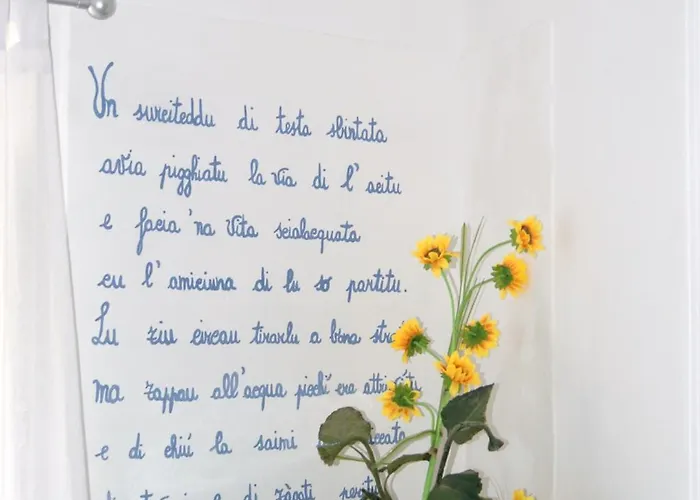 Un surciteddu di testa sbintata
avia pigghiatu la via di l' acitu
e facia 'na vita scialacquata
cu l' amiciuna di lu so partitu.
Lu ziu circau tirarlu a bona
ma zappau all'acqua picchì era
e di chiù la saimi
di